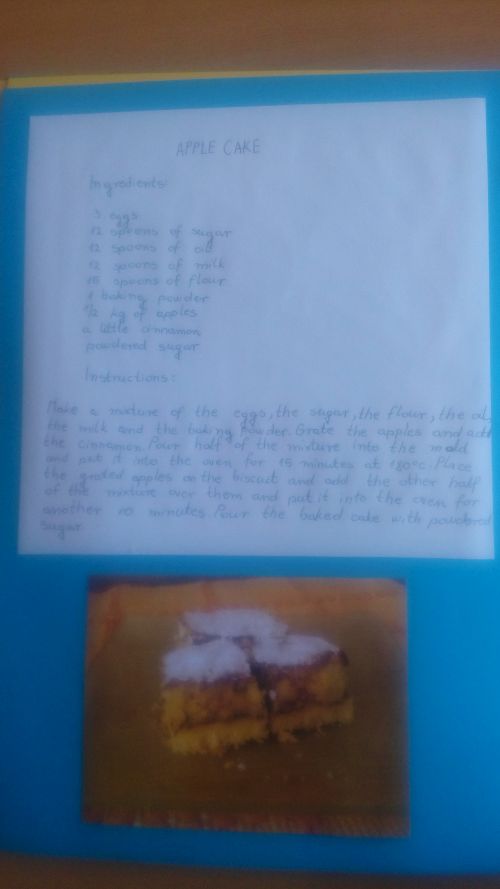 APPLE CAKE
Ingredients:
3 eggs
12 spoons of sugar
12 spoons of oil
12 spoons of milk
15 spoons of flour
1 baking powder
1/2 kg of apples
a little cinnamon
powdered sugar
Instructions:
Make a mixture of the eggs, the sugar, the flour, the oil,
the milk and the baking powder. Grate the apples and add
the cinnamon. Pour half of the mixture into the mold
and put it into the oven for 15 minutes at 180°C. Place
the grated apples on the biscuit and add the other half
of the mixture over them and put it into the oven for
another minutes. Pour the baked cake with powdered
sugar.